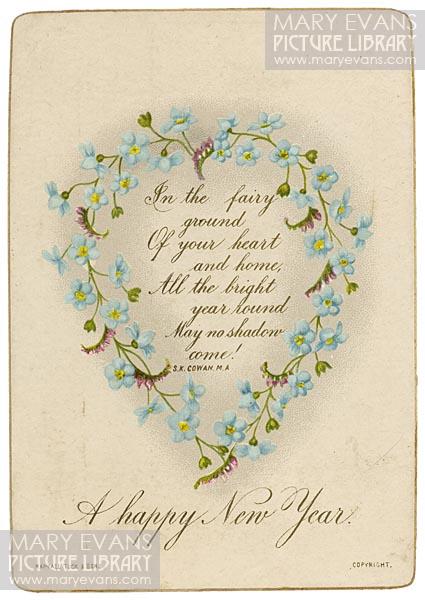 MARY EVANS
PICTURE LIBRARY
www.maryevans.com
In the fairy
ground
Of your heart
and home,
All the bright
year round
May no shadow
come!
S.K. COWAN, M.A
A happy New Year.
MARY EVANS
PICTURE LIBRARY
www.maryevans.com
COPYRIGHT.